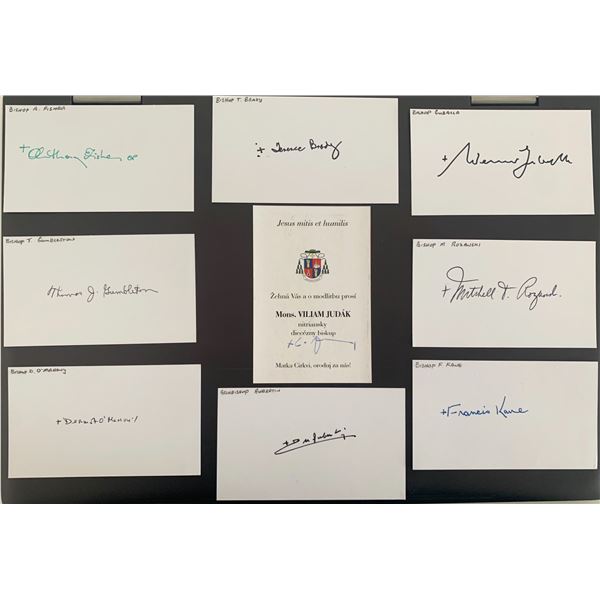 BISHOP A. FISHER
+ Anthony Fisher OP
BISHOP T. BRADY
+ Terence Brady
BISHOP GUBALLA
+
BISHOP T. GUMBLETON
Thomas J. Gumbleton
Jesus mitis et humilis
Žehná Vás a o modlitbu prosí
Mons. VILIAM JUDÁK
nitriansky
diecézny biskup
Matka Cirkvi, oroduj za nás!
BISHOP M ROZANSKI
+ Mitchell T. Rozanski
BISHOP D. O'MAHONY
+ Dermot O'Mahony
ARCHBISHOP AUBERTIN
BISHOP F. KANE
+Francis Kane